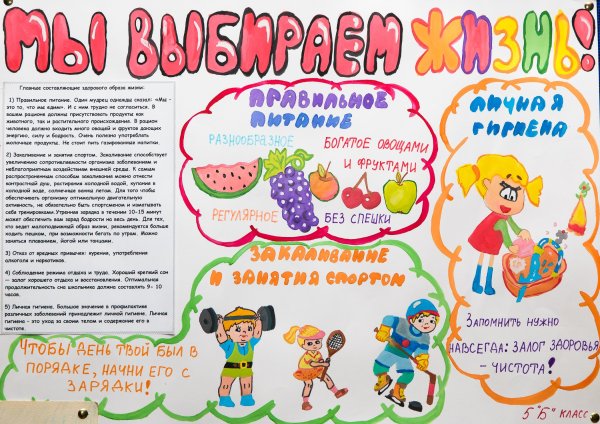 МЫ ВЫБИРАЕМ ЖИЗНЬ!
Главные составляющие здорового образа жизни:
1) Правильное питание. Один мудрец однажды сказал: «Мы -
это то, что мы едим». И с ним трудно не согласиться. В
вашем рационе должны присутствовать продукты как
животного, так и растительного происхождения. В рацион
человека должно входить много овощей и фруктов дающих
энергию, силу и бодрость. Очень полезно употреблять
молочные продукты. Не стоит пить газированные напитки.
2) Закаливание и занятия спортом. Закаливание способствует
увеличению сопротивляемости организма заболеваниям и
неблагоприятным воздействиям внешней среды. К самым
распространенным способам закаливания можно отнести
контрастный душ, растирания холодной водой, купание в
холодной воде, солнечные ванны летом. Для того чтобы
обеспечивать организму оптимальную двигательную
активность, не обязательно быть спортсменом и изматывать
себя тренировками. Утренняя зарядка в течении 10-15 минут
может обеспечить вам заряд бодрости на весь день. Для тех,
кто ведет малоподвижный образ жизни, рекомендуется больше
ходить пешком, при возможности бегать по утрам. Можно
заняться плаванием, йогой или танцами.
3) Отказ от вредных привычек: курения, употребления
алкоголя и наркотиков.
4) Соблюдение режима отдыха и труда. Хороший крепкий сон
— залог хорошего отдыха и восстановления. Оптимальная
продолжительность сна школьника должна составлять 9- 10
часов.
5) Личная гигиена. Большое значение в профилактике
различных заболеваний принадлежит личной гигиене. Личная
гигиена - это уход за своим телом и содержание его в
чистоте.
ПРАВИЛЬНОЕ
ПИТАНИЕ
РАЗНООБРАЗНОЕ
БОГАТОЕ ОВОЩАМИ
И ФРУКТАМИ
РЕГУЛЯРНОЕ
БЕЗ СПЕШКИ
ЛИЧНАЯ
ГИГИЕНА
ЗАПОМНИТЬ НУЖНО
НАВСЕГДА: ЗАЛОГ ЗДОРОВЬЯ
- ЧИСТОТА!
ЗАКАЛИВАНИЕ
И ЗАНЯТИЯ СПОРТОМ
ЧТОБЫ ДЕНЬ ТВОЙ БЫЛ В
ПОРЯДКЕ, НАЧНИ ЕГО С
ЗАРЯДКИ!
5 "Б" КЛАСС